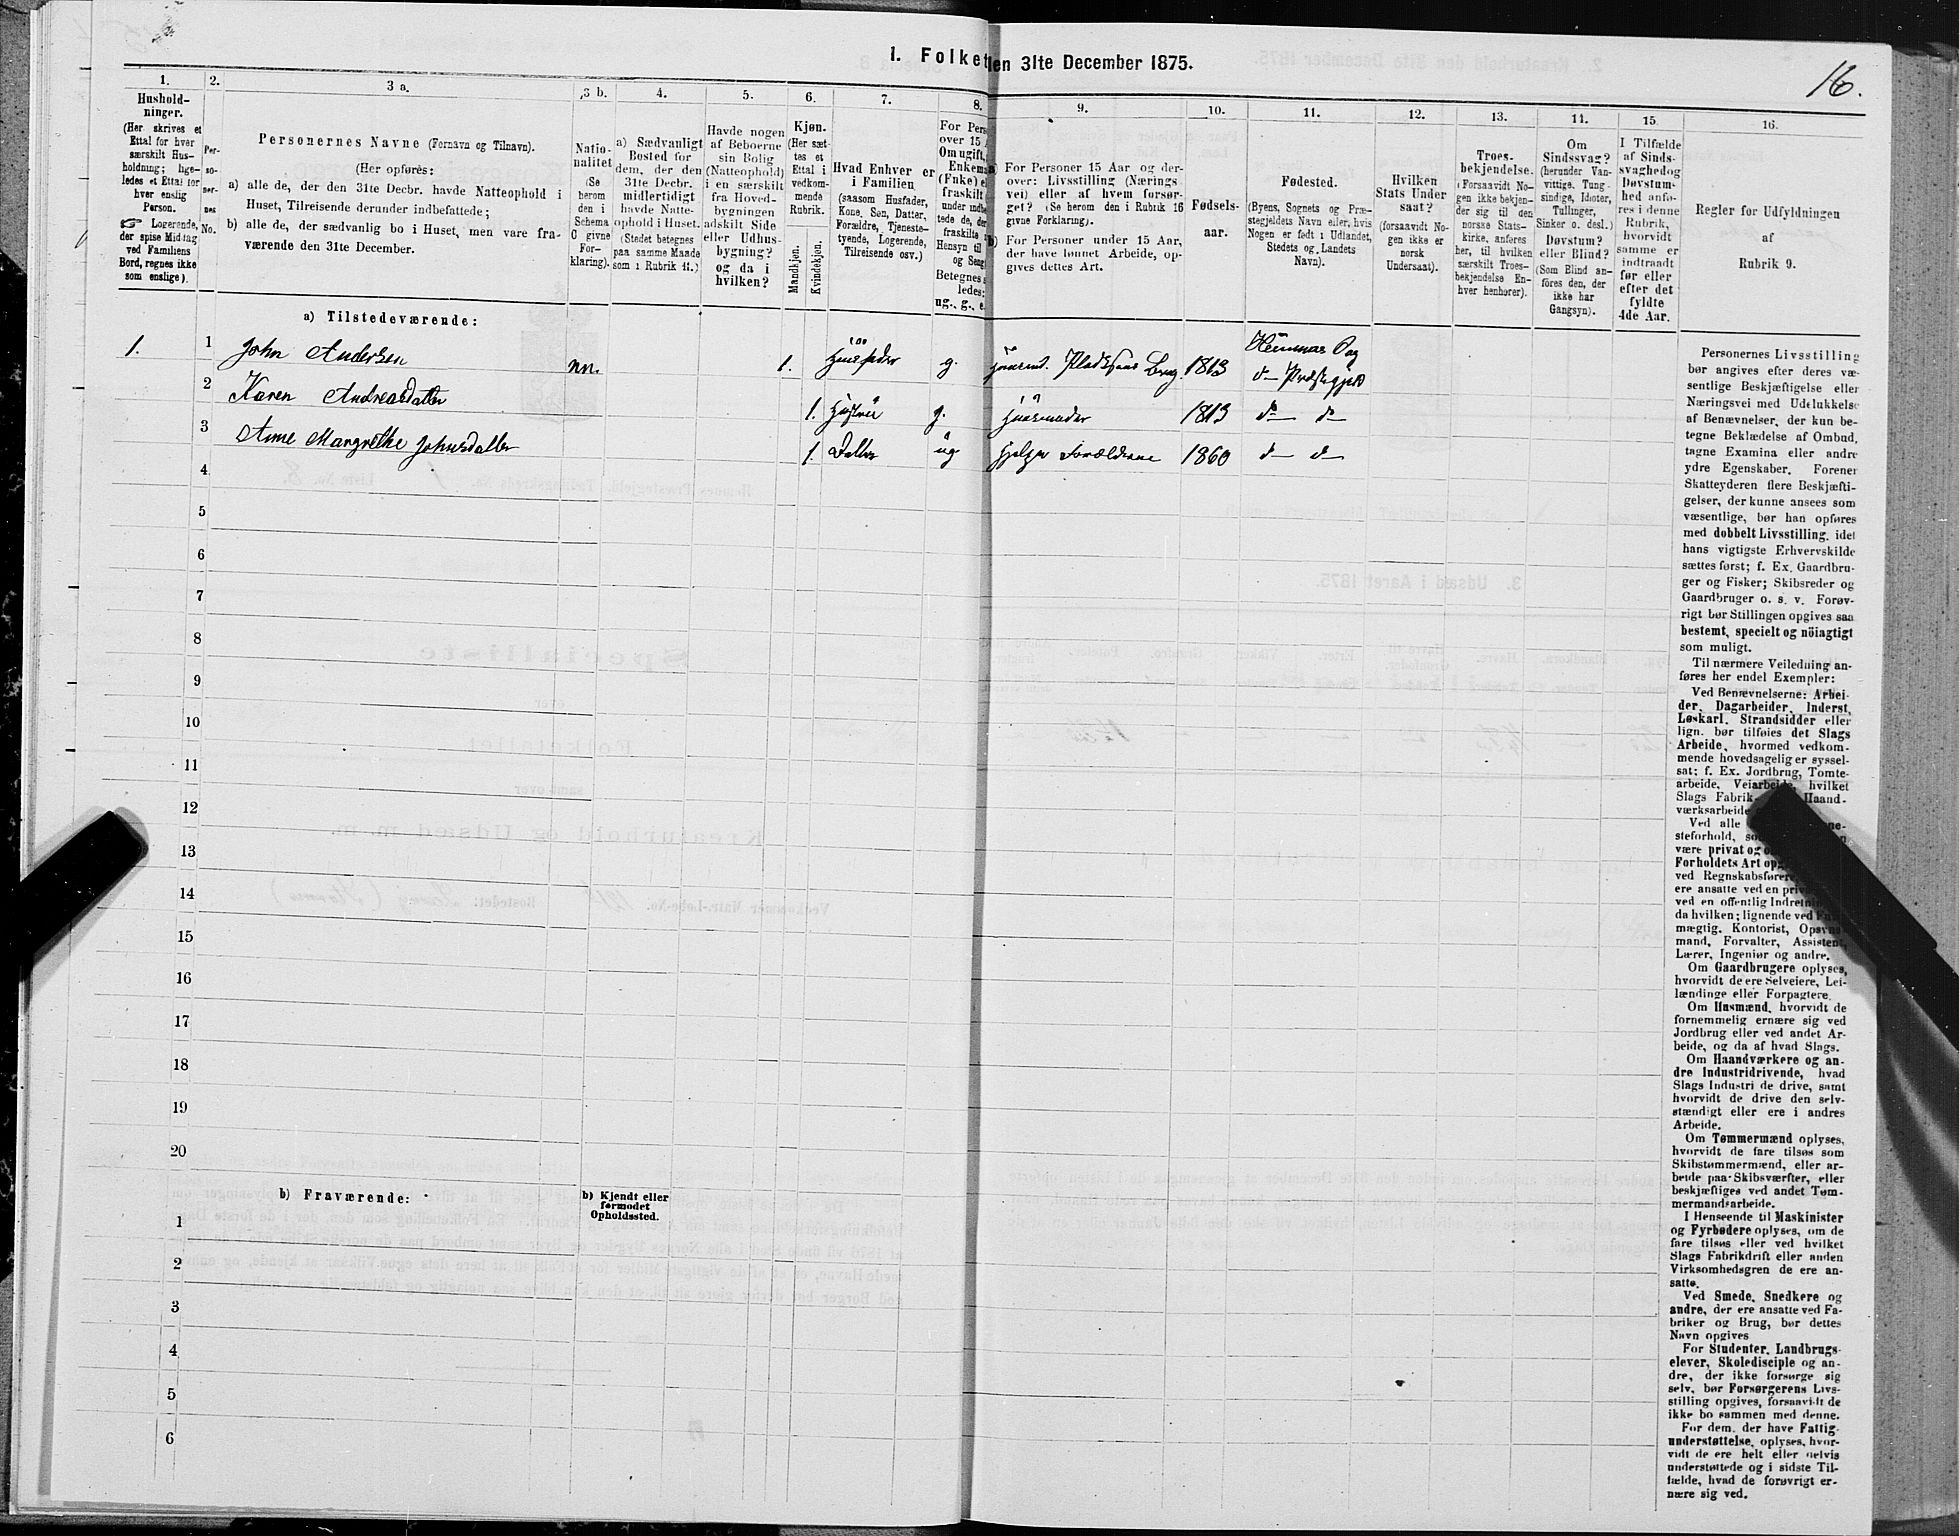 1. Folket
en 31te December 1875.
16.
1.
2.
3 a.
3 b.
4.
5.
6.
7.
8.
9.
10.
11.
12.
13.
11.
15.
16.
Hushold-
ninger.
(Her skrives et
Ettal for hver
særskilt Hus-
holdning; lige-
ledes et Ettal for
hver enslig
Person.
☞ Logerende,
der spise Middag
ved Familiens
Bord, regnes ikke
som enslige).
Per-
so-
ner-
nes
No.
Personernes Navne (Fornavn og Tilnavn).
(Her opføres:
a) alle de, der den 31te Decbr. havde Natteophold i
Huset, Tilreisende derunder indbefattede;
b) alle de, der sædvanlig bo i Huset, men vare fra-
værende den 31te December.
Natio-
nalitet
(Se
herom
den i
Schema
O givne
For-
klaring).
a) Sædvanligt
Bosted for
dem, der den
31te Decbr.
midlertidigt
havde Natte-
ophold i Huset.
(Stedet betegnes
paa samme Maade
som i Rubrik 11.)
Havde nogen
af Beboerne
sin Bolig
(Natteophold)
i en særskilt
fra Hoved-
bygningen
adskilt Side
eller Udhus-
bygning?
og da i
hvilken?
Kjøn.
(Her sæt-
tes et
Ettal i
vedkom-
mende
Rubrik.
Mandkjøn.
Kvindekjøn.
Hvad Enhver er
i Familien
(saasom Husfader,
Kone, Søn, Datter,
Forældre, Tjeneste-
tyende, Logerende,
Tilreisende osv.)
For Pers
over 15 A
Om ugift,
Enkema
(Enke) e
fraskilt
under indbe
tede de, der
fraskilte
Hensyn til
og Seng
Betegnes s
ledes:
ug., g., e.
a) For Personer 15 Aar og der-
over: Livsstilling (Nærings
vei) eller af hvem forsør-
get? (Se herom den i Rubrik 16
givne Forklaring).
b) For Personer under 15 Aar,
der have lønnet Arbeide, op-
gives dettes Art.
Fødsels-
aar.
Fødested.
(Byens, Sognets og Præ-
stegjeldets Navn eller, hvis
Nogen er født i Udlandet,
Stedets og Landets
Navn).
Hvilken
Stats Under
saat?
(forsaavidt No-
gen ikke er
norsk
Undersaat).
Troes-
bekjendelse.
(Forsaavidt No-
gen ikke bekjen-
der sig til den
norske Stats-
kirke, anføres
her, til hvilken
særskilt Troes-
bekjendelse En-
hver henhører).
Om
Sindssvag?
(herunder Van-
vittige, Tung-
sindige, Idioter,
Tullinger,
Sinker o. desl.)
Døvstum?
eller Blind?
(Som Blind an-
føres den, der
ikke har
Gangsyn).
I Tilfælde
af Sinds-
svaghed og
Døvstum-
hed anfø-
res i denne
Rubrik,
hvorvidt
samme er
indtraadt
før eller
efter det
fyldte
4de Aar.
Regler for Udfyldningen
af
Rubrik 9.
a) Tilstedeværende:
1. 1 John Andersen nn. 1. Huusfader g. Huusm. Pladsens Brug. 1813 Hemnæs Sog
d— Præstegjeld
2 Karen Andreasdatter 1. Hustrue g. Huusmoder 1813 d— d—
3 Anne Margrethe Johnsdatter 1. Datter ug Hjelper Forældrene 1860 d— d—
4
5
6
7
8
9
10
11
12
13
14
15
16
17
18
19
20
b) Fraværende:
b) Kjendt eller
formodet
Opholdssted.
1
2
3
4
5
6
Personernes Livsstilling
bør angives efter deres væ-
sentlige Beskjæftigelse eller
Næringsvei med Udelukkelse
af Benævnelser, der kun be-
tegne Beklædelse af Ombud,
tagne Examina eller andre
ydre Egenskaber. Forener
Skatteyderen flere Beskjæfti-
gelser, der kunne ansees som
væsentlige, bør han opføres
med dobbelt Livsstilling, idet
hans vigtigste Erhvervskilde
sættes først; f. Ex. Gaardbru-
ger og Fisker; Skibsreder og
Gaardbruger o. s. v. Forøv-
rigt bør Stillingen opgives saa
bestemt, specielt og nöiagtigt
som muligt.
Til nærmere Veiledning an-
føres her endel Exempler:
Ved Benævnelserne: Arbei-
der, Dagarbeider, Inderst,
Løskarl, Strandsidder eller
lign. bør tilføies det Slags
Arbeide, hvormed vedkom-
mende hovedsagelig er syssel-
sat; f. Ex. Jordbrug, Tomte-
arbeide, Veiarbeide, hvilket
Slags Fabrik- Haand-
værksarbeide
Ved alle ne-
steforhold, so
være privat og o
Forholdets Art opg
ved Regnskabsfører
ere ansatte ved en priv
ved en offentlig Indretn
da hvilken; lignende ved Fuld-
mægtig, Kontorist, Opsyns-
mand, Forvalter, Assistent,
Lærer, Ingeniør og andre.
Om Gaardbrugere oplyses,
hvorvidt de ere Selveiere, Lei-
lændinge eller Forpagtere.
Om Husmænd, hvorvidt de
fornemmelig ernære sig ved
Jordbrug eller ved andet Ar-
beide, og da af hvad Slags.
Om Haandværkere og an-
dre Industridrivende, hvad
Slags Industri de drive, samt
hvorvidt de drive den selv-
stændigt eller ere i andres
Arbeide.
Om Tømmermænd oplyses,
hvorvidt de fare tilsøs som
Skibstømmermænd, eller ar-
beide paa Skibsværfter, eller
beskjæftiges ved andet Tøm-
mermandsarbeide.
I Henseende til Maskinister
og Fyrbødere oplyses, om de
fare tilsøs eller ved hvilket
Slags Fabrikdrift eller anden
Virksomhedsgren de ere an-
satte.
Ved Smede, Snedkere og
andre, der ere ansatte ved Fa-
briker og Brug, bør dettes
Navn opgives
For Studenter, Landbrugs-
elever, Skoledisciple og an-
dre, der ikke forsørge sig
selv, bør Forsørgerens Livs-
stilling opgives, forsaavidt de
ikke bo sammen med denne.
For dem, der have Fattig-
understøttelse, oplyses, hvor-
vidt de ere helt eller delvis
understøttede og i sidste Til-
fælde, hvad de forøvrigt er-
nære sig ved.